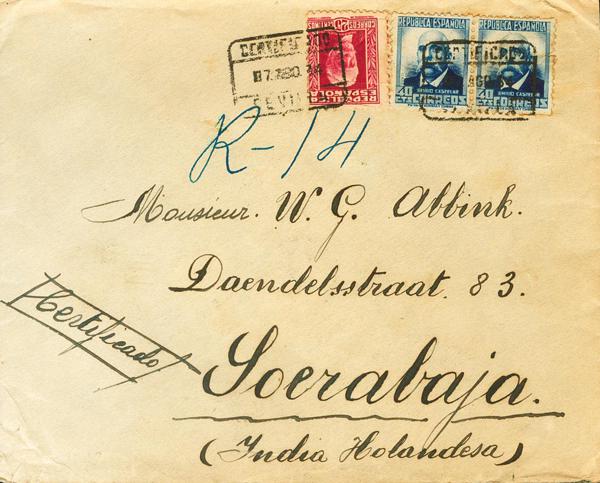 CERTIFICADO
REPUBLICA
ESPAÑOLA
CORREOS
REPUBLICA ESPAÑOLA
EMILIO CASTELAR
40 CTS CORREOS
REPUBLICA ESPAÑOLA
EMILIO CASTELAR
40 CTS CORREOS
CERTIFICADO
R-14
Monsieur. W. G. Abbink.
Daendelsstraat. 83.
Certificado
Soerabaja.
(India Holandesa)